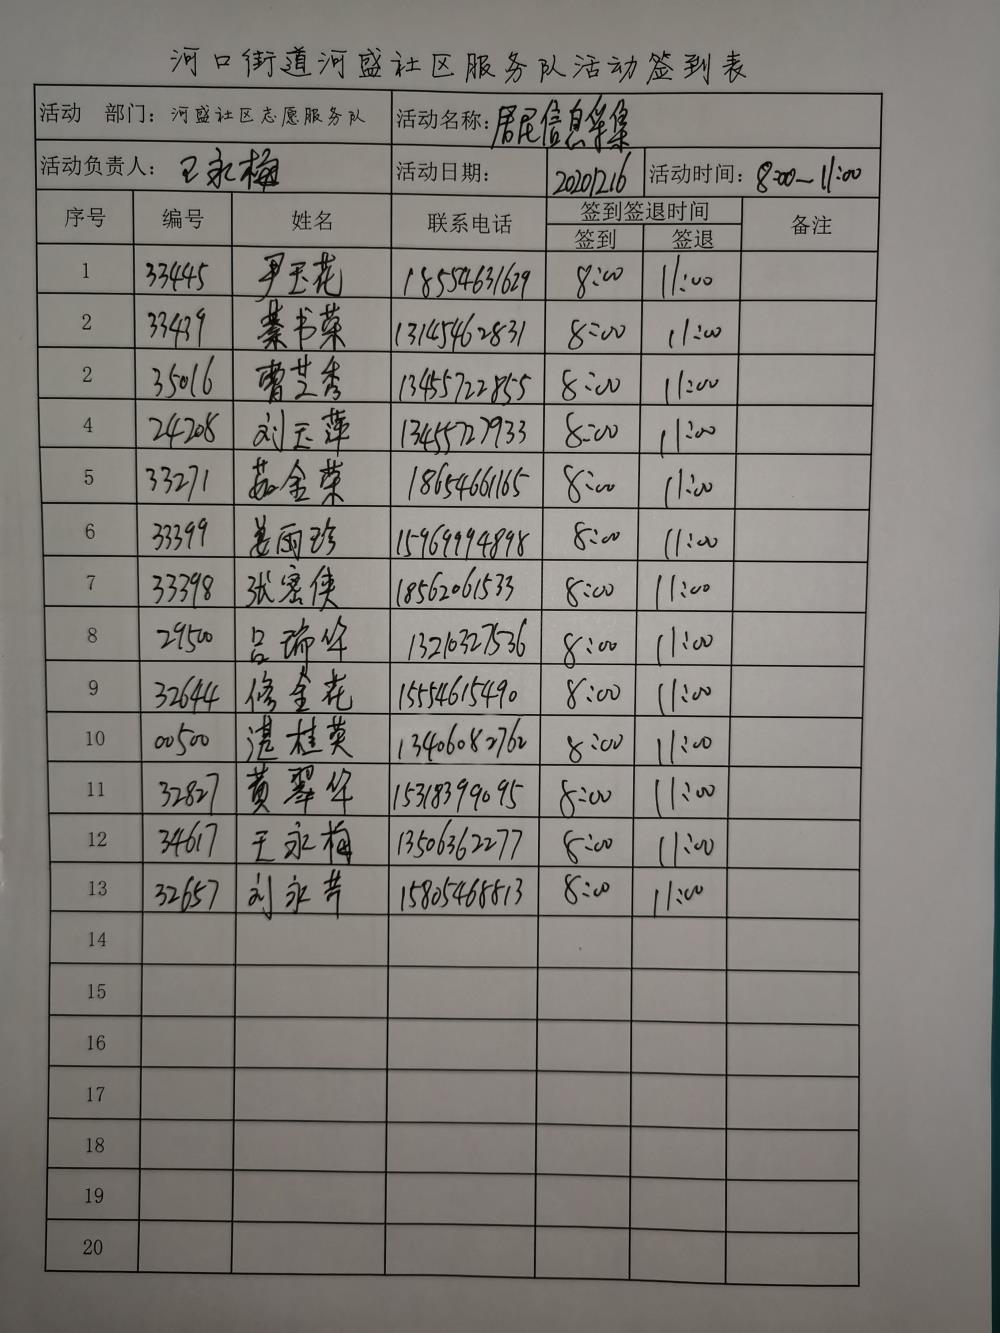 河口街道河盛社区服务队活动签到表
活动 部门：河盛社区志愿服务队 活动名称：居民信息采集
活动负责人：王永梅 活动日期： 20201216 活动时间：8:00—11:00
序号 编号 姓名 联系电话 签到签退时间 备注
签到 签退
1 33445 尹玉花 18554631629 8:00 11:00
2 33439 綦书荣 13145462831 8:00 11:00
2 35016 曹芝秀 13455722855 8:00 11:00
4 24208 刘玉萍 13455727933 8:00 11:00
5 33271 茹金荣 18654661165 8:00 11:00
6 33399 姜雨珍 15969994898 8:00 11:00
7 33398 张密侠 18562061533 8:00 11:00
8 29500 吕瑞华 13210327536 8:00 11:00
9 32644 修金花 15554615490 8:00 11:00
10 00500 湛桂英 13406082762 8:00 11:00
11 32827 黄翠华 15318399095 8:00 11:00
12 34617 王永梅 13506362277 8:00 11:00
13 32657 刘永芹 15805468813 8:00 11:00
14
15
16
17
18
19
20